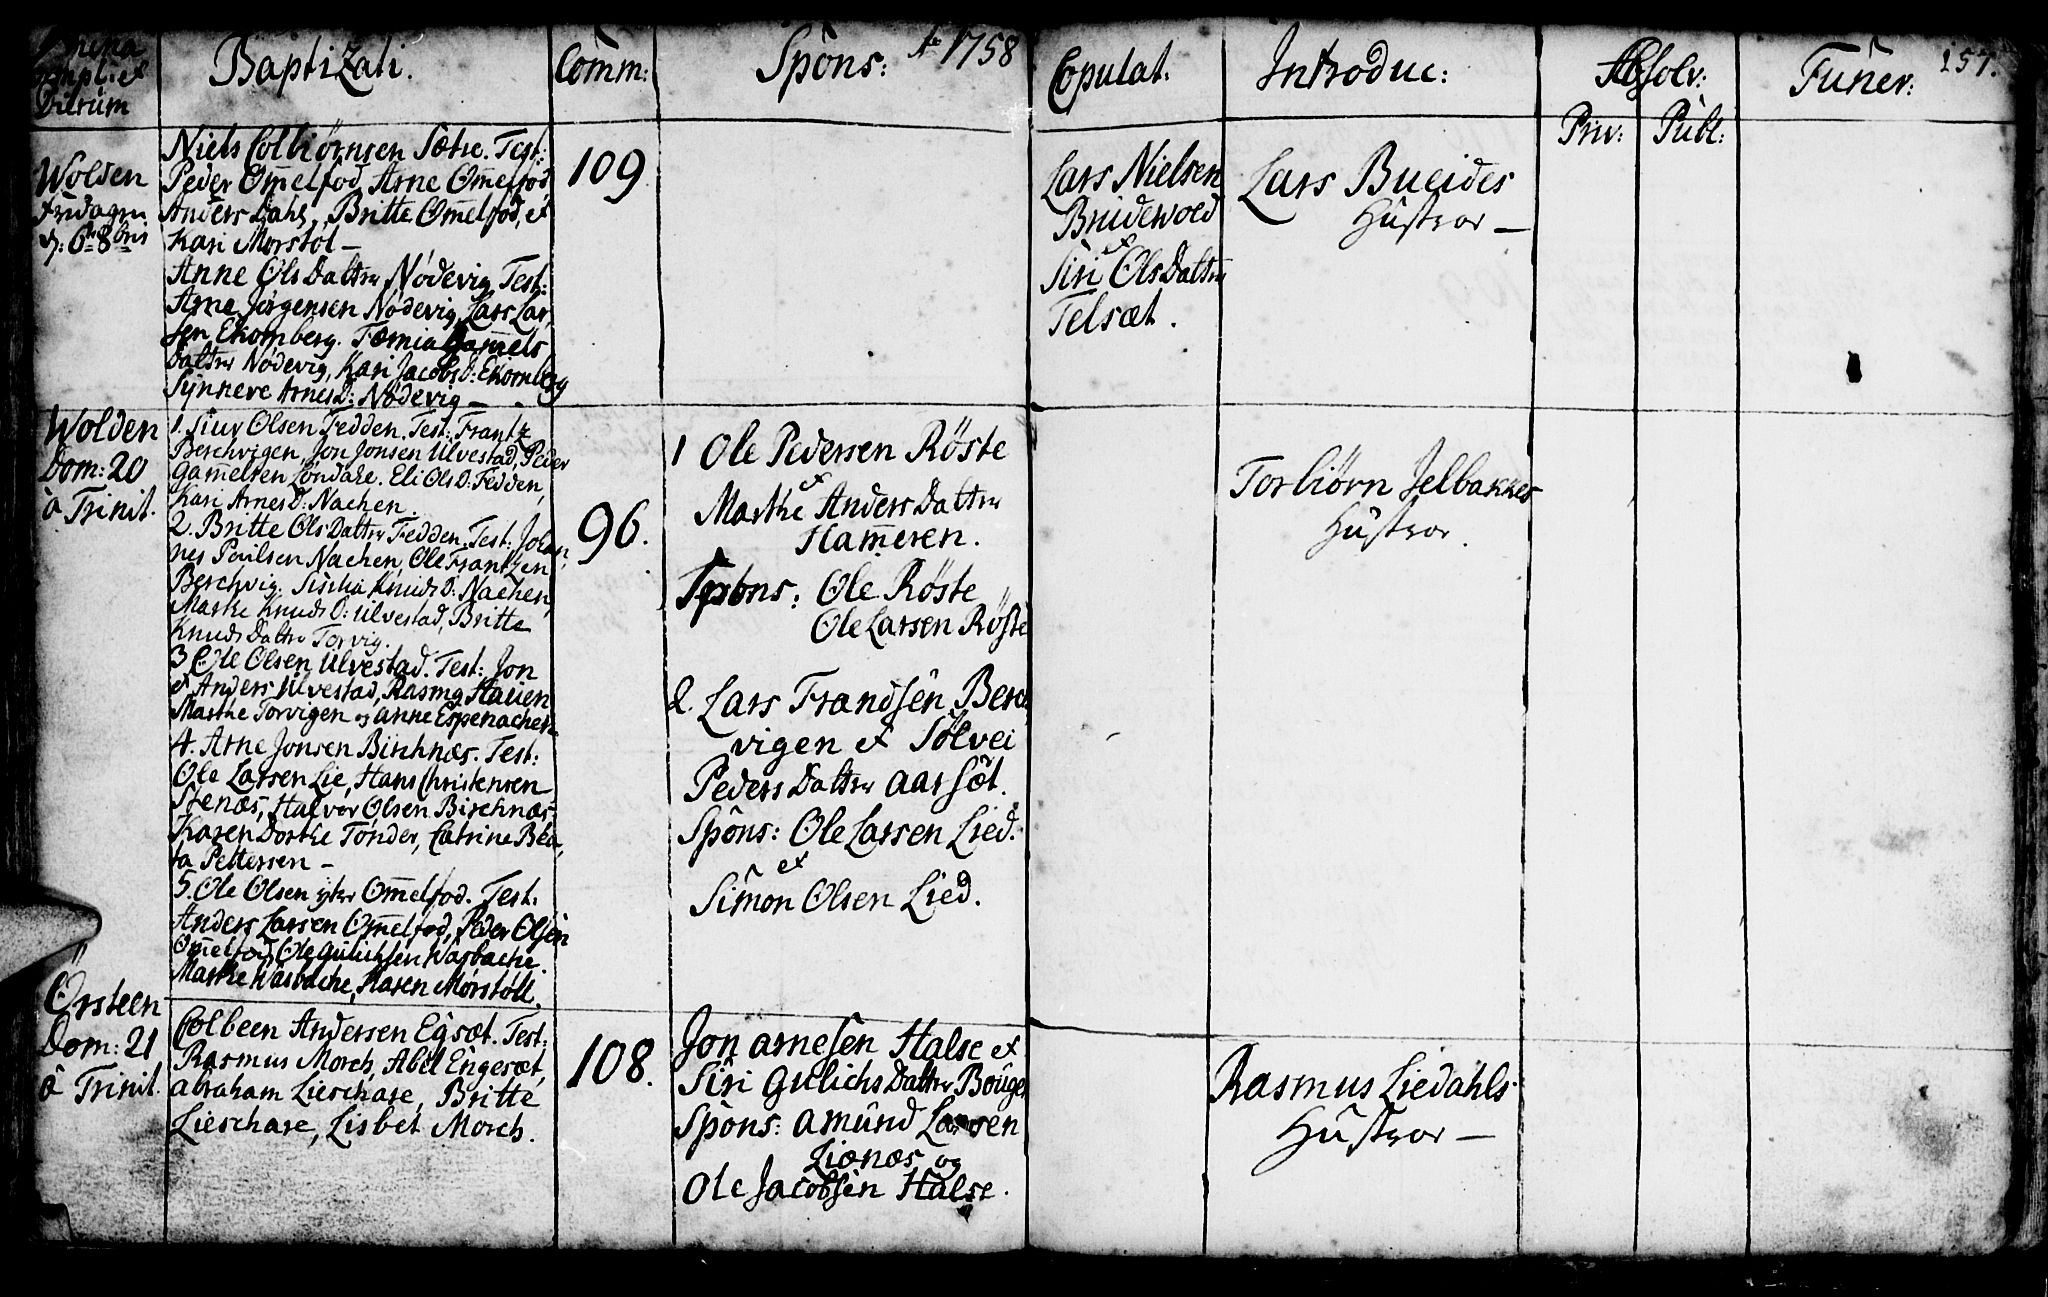 Baptizati.
Comm:
Spons: Ao 1758
Copulat:
Introduc:
Absolv:
Priv: Publ:
Funer:
157.
Wolden
Fredagen
d: 6te 8bris
Niels Colbiørnsen Sætre. Test:
Peder Om̅elfod, Arne Om̅elfod
Anders Dahl, Britte Om̅elfod, et
Kari Morstøl –
Anne OlsDatter Nødevig, Test:
Arne Jørgensen Nødevig, Lars Lar,
sen Ekornberg. Gam̅els
Datter Nødevig, Kari JacobsD: Ekornberg
Synneve ArnesD: Nødevig –
109
Lars Nielsen
Brudewold
et
Siri OlsDatter
Telsæt.
Lars Bueides
Hustroe –
Wolden
Dom: 20
à Trinit.
1. Siur Olsen Fedden. Test: Frantz
Berchvigen, Jon Jonsen Ulvestad, Peder
Gam̅elsen Løndahl. Eli OlsD: Fedden,
Kari ArnesD: Nachen.
2. Britte OlsDatter Fedden. Test: Johan,
nes Poulsen Nachen, Ole Frantzen
Berchvig. Sisilia KnudsD: Nachen,
Marthe KnudsD: Ulvestad, Britte
KnudsDatter Torvig.
3 Ole Olsen Ulvestad. Test: Jon
et Anders Ulvestad, Rasmq Hauen
Marthe Torvigen og Anne Espenachen
4. Arne Jonsen Birchnæs. Test:
Ole Larsen Lie, Hans Christensen
Stenæs, Halvor Olsen Birchnæs
Karen Dorthe Tønder, Catrine Bea,
ta Pettersen –
5. Ole Olsen ytre Om̅elfod. Test:
Anders Larsen Om̅elfod, Peder Olsen
Om̅elfod, Ole Gulichsen Wasbache.
Marthe Wasbache, Karen Mørstøll.
96.
1 Ole Pedersen Røste
et
Marthe AndersDatter
Ham̅eren.
Spons: Ole Røste
Ole Larsen Røste
2. Lars Frandsen Berch
vigen et Solvei
PedersDatter Aarsæt.
Spons: Ole Larsen Lied.
et
Simon Olsen Lied.
Torbiørn Jelbakkes
Hustroe.
Ørsteen
Dom: 21
à Trinit.
Colbeen Andersen Egsæt. Test:
Rasmus Morch, Abel Engesæt,
Abraham Lieschare, Britte
Lieschare, Lisbet Morch.
108.
Jon Arnesen Halse et
Siri GulichsDatter Bouge
Spons: Amund Larsen
Lienæs og
Ole Jacobsen Halse.
Rasmus Liedahls
Hustroe –